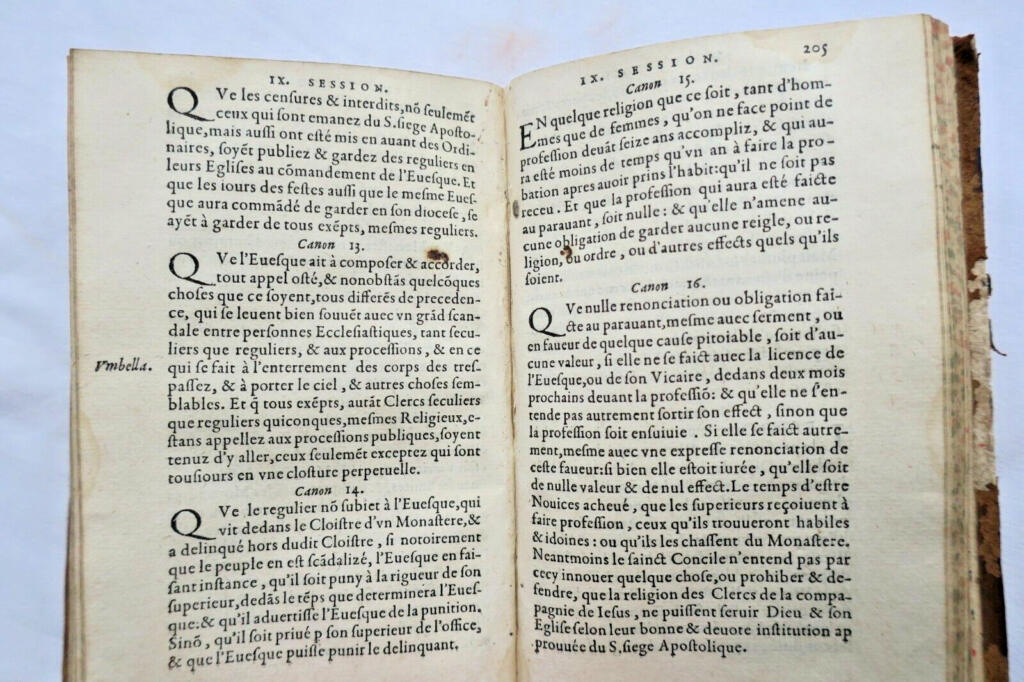 IX. SESSION.
QVe les censures & interdits, nõ seulemẽt
ceux qui sont emanez du S. siege Aposto-
lique, mais aussi ont esté mis en auant des Ordi-
naires, soyẽt publiez & gardez des reguliers en
leurs Eglises au cõmandement de l'Euesque. Et
que les iours des festes aussi que le mesme Eues-
que aura commãdé de garder en son diocese, se
ayẽt à garder de tous exẽpts, mesmes reguliers.
Canon 13.
QVe l'Euesque ait à composer & accorder,
tout appel osté, & nonobstãs quelcõques
choses que ce soyent, tous differẽs de preceden-
ce, qui se leuent bien souuẽt auec vn grãd scan-
dale entre personnes Ecclesiastiques, tant secu-
liers que reguliers, & aux processions, & en ce
Vmbella.
qui se fait à l'enterrement des corps des tres-
passez, & à porter le ciel, & autres choses sem-
blables. Et q̃ tous exẽpts, autãt Clercs seculiers
que reguliers quiconques, mesmes Religieux, e-
stans appellez aux processions publiques, soyent
tenuz d'y aller, ceux seulemẽt exceptez qui sont
tousiours en vne closture perpetuelle.
Canon 14.
QVe le regulier nõ subiet à l'Euesque, qui
vit dedans le Cloistre d'vn Monastere, &
a delinqué hors dudit Cloistre, si notoirement
que le peuple en est scãdalizé, l'Euesque en fai-
sant instance, qu'il soit puny à la rigueur de son
superieur, dedãs le tẽps que determinera l'Eues-
que: & qu'il aduertisse l'Euesque de la punition.
Sinõ, qu'il soit priué p son superieur de l'office,
& que l'Euesque puisse punir le delinquant.
IX. SESSION. 205
Canon 15.
EN quelque religion que ce soit, tant d'hom-
mes que de femmes, qu'on ne face point de
profession deuãt seize ans accompliz, & qui au-
ra esté moins de temps qu'vn an à faire la pro-
bation apres auoir prins l'habit: qu'il ne soit pas
receu. Et que la profession qui aura esté faicte
au parauant, soit nulle: & qu'elle n'amene au-
cune obligation de garder aucune reigle, ou re-
ligion, ou ordre, ou d'autres effects quels qu'ils
soient.
Canon 16.
QVe nulle renonciation ou obligation fai-
cte au parauant, mesme auec serment, ou
en faueur de quelque cause pitoiable, soit d'au-
cune valeur, si elle ne se faict auec la licence de
l'Euesque, ou de son Vicaire, dedans deux mois
prochains deuant la professiõ: & qu'elle ne s'en-
tende pas autrement sortir son effect, sinon que
la profession soit ensuiuie. Si elle se faict autre-
ment, mesme auec vne expresse renonciation de
ceste faueur: si bien elle estoit iurée, qu'elle soit
de nulle valeur & de nul effect. Le temps d'estre
Nouices acheué, que les superieurs reçoiuent à
faire profession, ceux qu'ils trouueront habiles
& idoines: ou qu'ils les chassent du Monastere.
Neantmoins le sainct Concile n'entend pas par
cecy innouer quelque chose, ou prohiber & de-
fendre, que la religion des Clercs de la compa-
pagnie de Iesus, ne puissent seruir Dieu & son
Eglise selon leur bonne & deuote institution ap
prouuée du S. siege Apostolique.